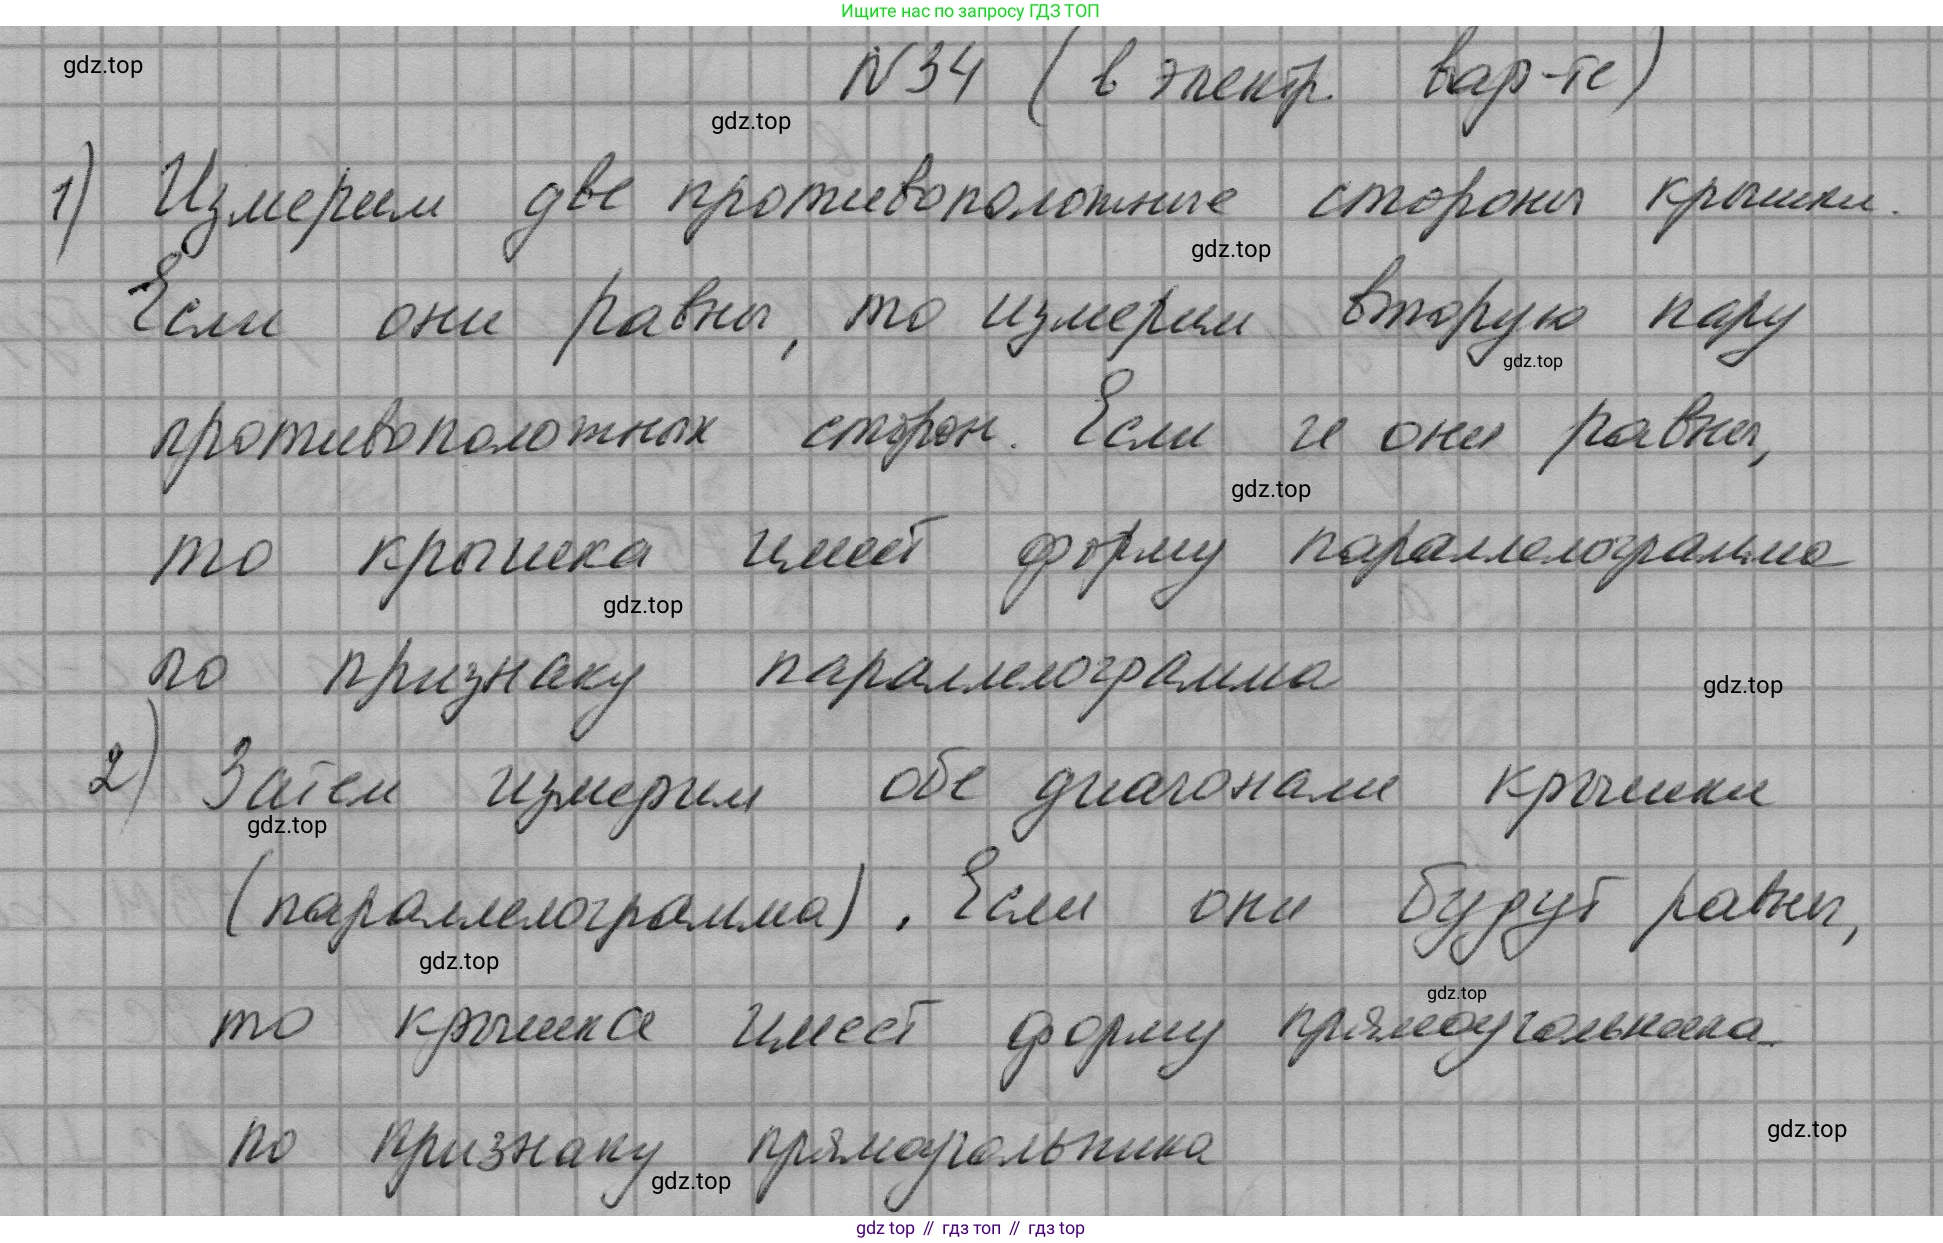 Ищите нас по запросу ГДЗ ТОП
gdz.top
N34 (в электр. вар-те)
gdz.top
1) Измерим две противоположные стороны крышки.
gdz.top
Если они равны, то измерим вторую пару
gdz.top
противоположных сторон. Если и они равны,
gdz.top
то крышка имеет форму параллелограмма
gdz.top
по признаку параллелограмма
gdz.top
2) Затем измерим обе диагонали крышки
gdz.top
(параллелограмма). Если они будут равны,
gdz.top
gdz.top
то крышка имеет форму прямоугольника
gdz.top
по признаку прямоугольника
gdz.top
gdz top // гдз топ // гдз top